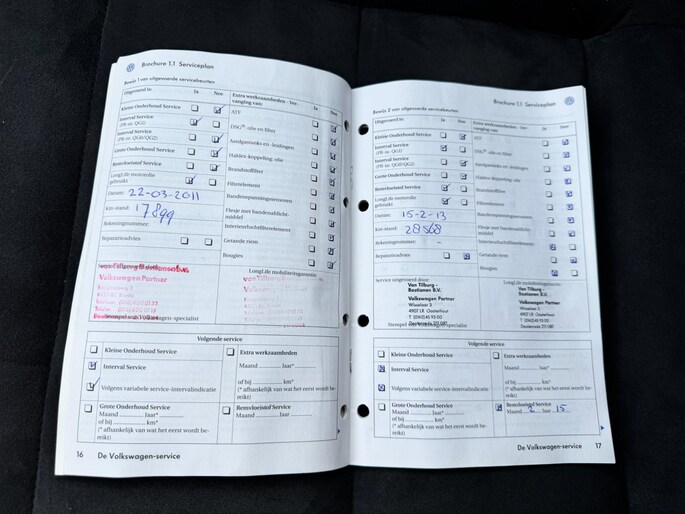 Brochure 1.1 Serviceplan
Bewijs 1 van uitgevoerde servicebeurten
Uitgevoerd is: Ja Nee
Kleine Onderhoud Service
Interval Service
(PR-nr. QG1)
Interval Service
(PR-nr. QG0/QG2)
Grote Onderhoud Service
Remvloeistof Service
LongLife motorolie
gebruikt
Datum: 22-03-2011
Km-stand: 17899
Rekeningnummer:
Reparatieadvies
Extra werkzaamheden - Ver-
vanging van: Ja Nee
ATF
DSG®-olie en filter
Aardgastanks en -leidingen
Haldex-koppeling: olie
Brandstoffilter
Filterelement
Bandenspanningssensoren
Flesje met bandenafdicht-
middel
Interieurluchtfilterelement
Getande riem
Bougies
van Tilburg Bastiaansen b.v.
Volkswagen Partner
Stempel van Volkswagen-specialist
LongLife mobiliteitsgarantie:
Volgende service
Kleine Onderhoud Service
Interval Service
Volgens variabele service-intervalindicatie
Extra werkzaamheden
Maand ........ jaar* ........
of bij .................. km*
(* afhankelijk van wat het eerst wordt be-
reikt)
Grote Onderhoud Service
Maand ........ jaar* ........
of bij .................. km*
(* afhankelijk van wat het eerst wordt be-
reikt)
Remvloeistof Service
Maand ........ jaar ........
16 De Volkswagen-service
Brochure 1.1 Serviceplan
Bewijs 2 van uitgevoerde servicebeurten
Uitgevoerd is: Ja Nee
Kleine Onderhoud Service
Interval Service
(PR-nr. QG1)
Interval Service
(PR-nr. QG0/QG2)
Grote Onderhoud Service
Remvloeistof Service
LongLife motorolie
gebruikt
Datum: 15-2-13
Km-stand: 28568
Rekeningnummer: -
Reparatieadvies
Extra werkzaamheden - Ver-
vanging van: Ja Nee
ATF
DSG®-olie en filter
Aardgastanks en -leidingen
Haldex-koppeling: olie
Brandstoffilter
Filterelement
Bandenspanningssensoren
Flesje met bandenafdicht-
middel
Interieurluchtfilterelement
Getande riem
Bougies
Service uitgevoerd door:
Van Tilburg -
Bastianen B.V.
Volkswagen Partner
4907 LR Oosterhout
Stempel van Volkswagen-specialist
LongLife mobiliteitsgarantie:
Van Tilburg -
Bastianen B.V.
Volkswagen Partner
4907 LR Oosterhout
Volgende service
Kleine Onderhoud Service
Interval Service
Volgens variabele service-intervalindicatie
Extra werkzaamheden
Maand ........ jaar* ........
of bij .................. km*
(* afhankelijk van wat het eerst wordt be-
reikt)
Grote Onderhoud Service
Maand ........ jaar* ........
of bij .................. km*
(* afhankelijk van wat het eerst wordt be-
reikt)
Remvloeistof Service
Maand 2 jaar 15
De Volkswagen-service 17